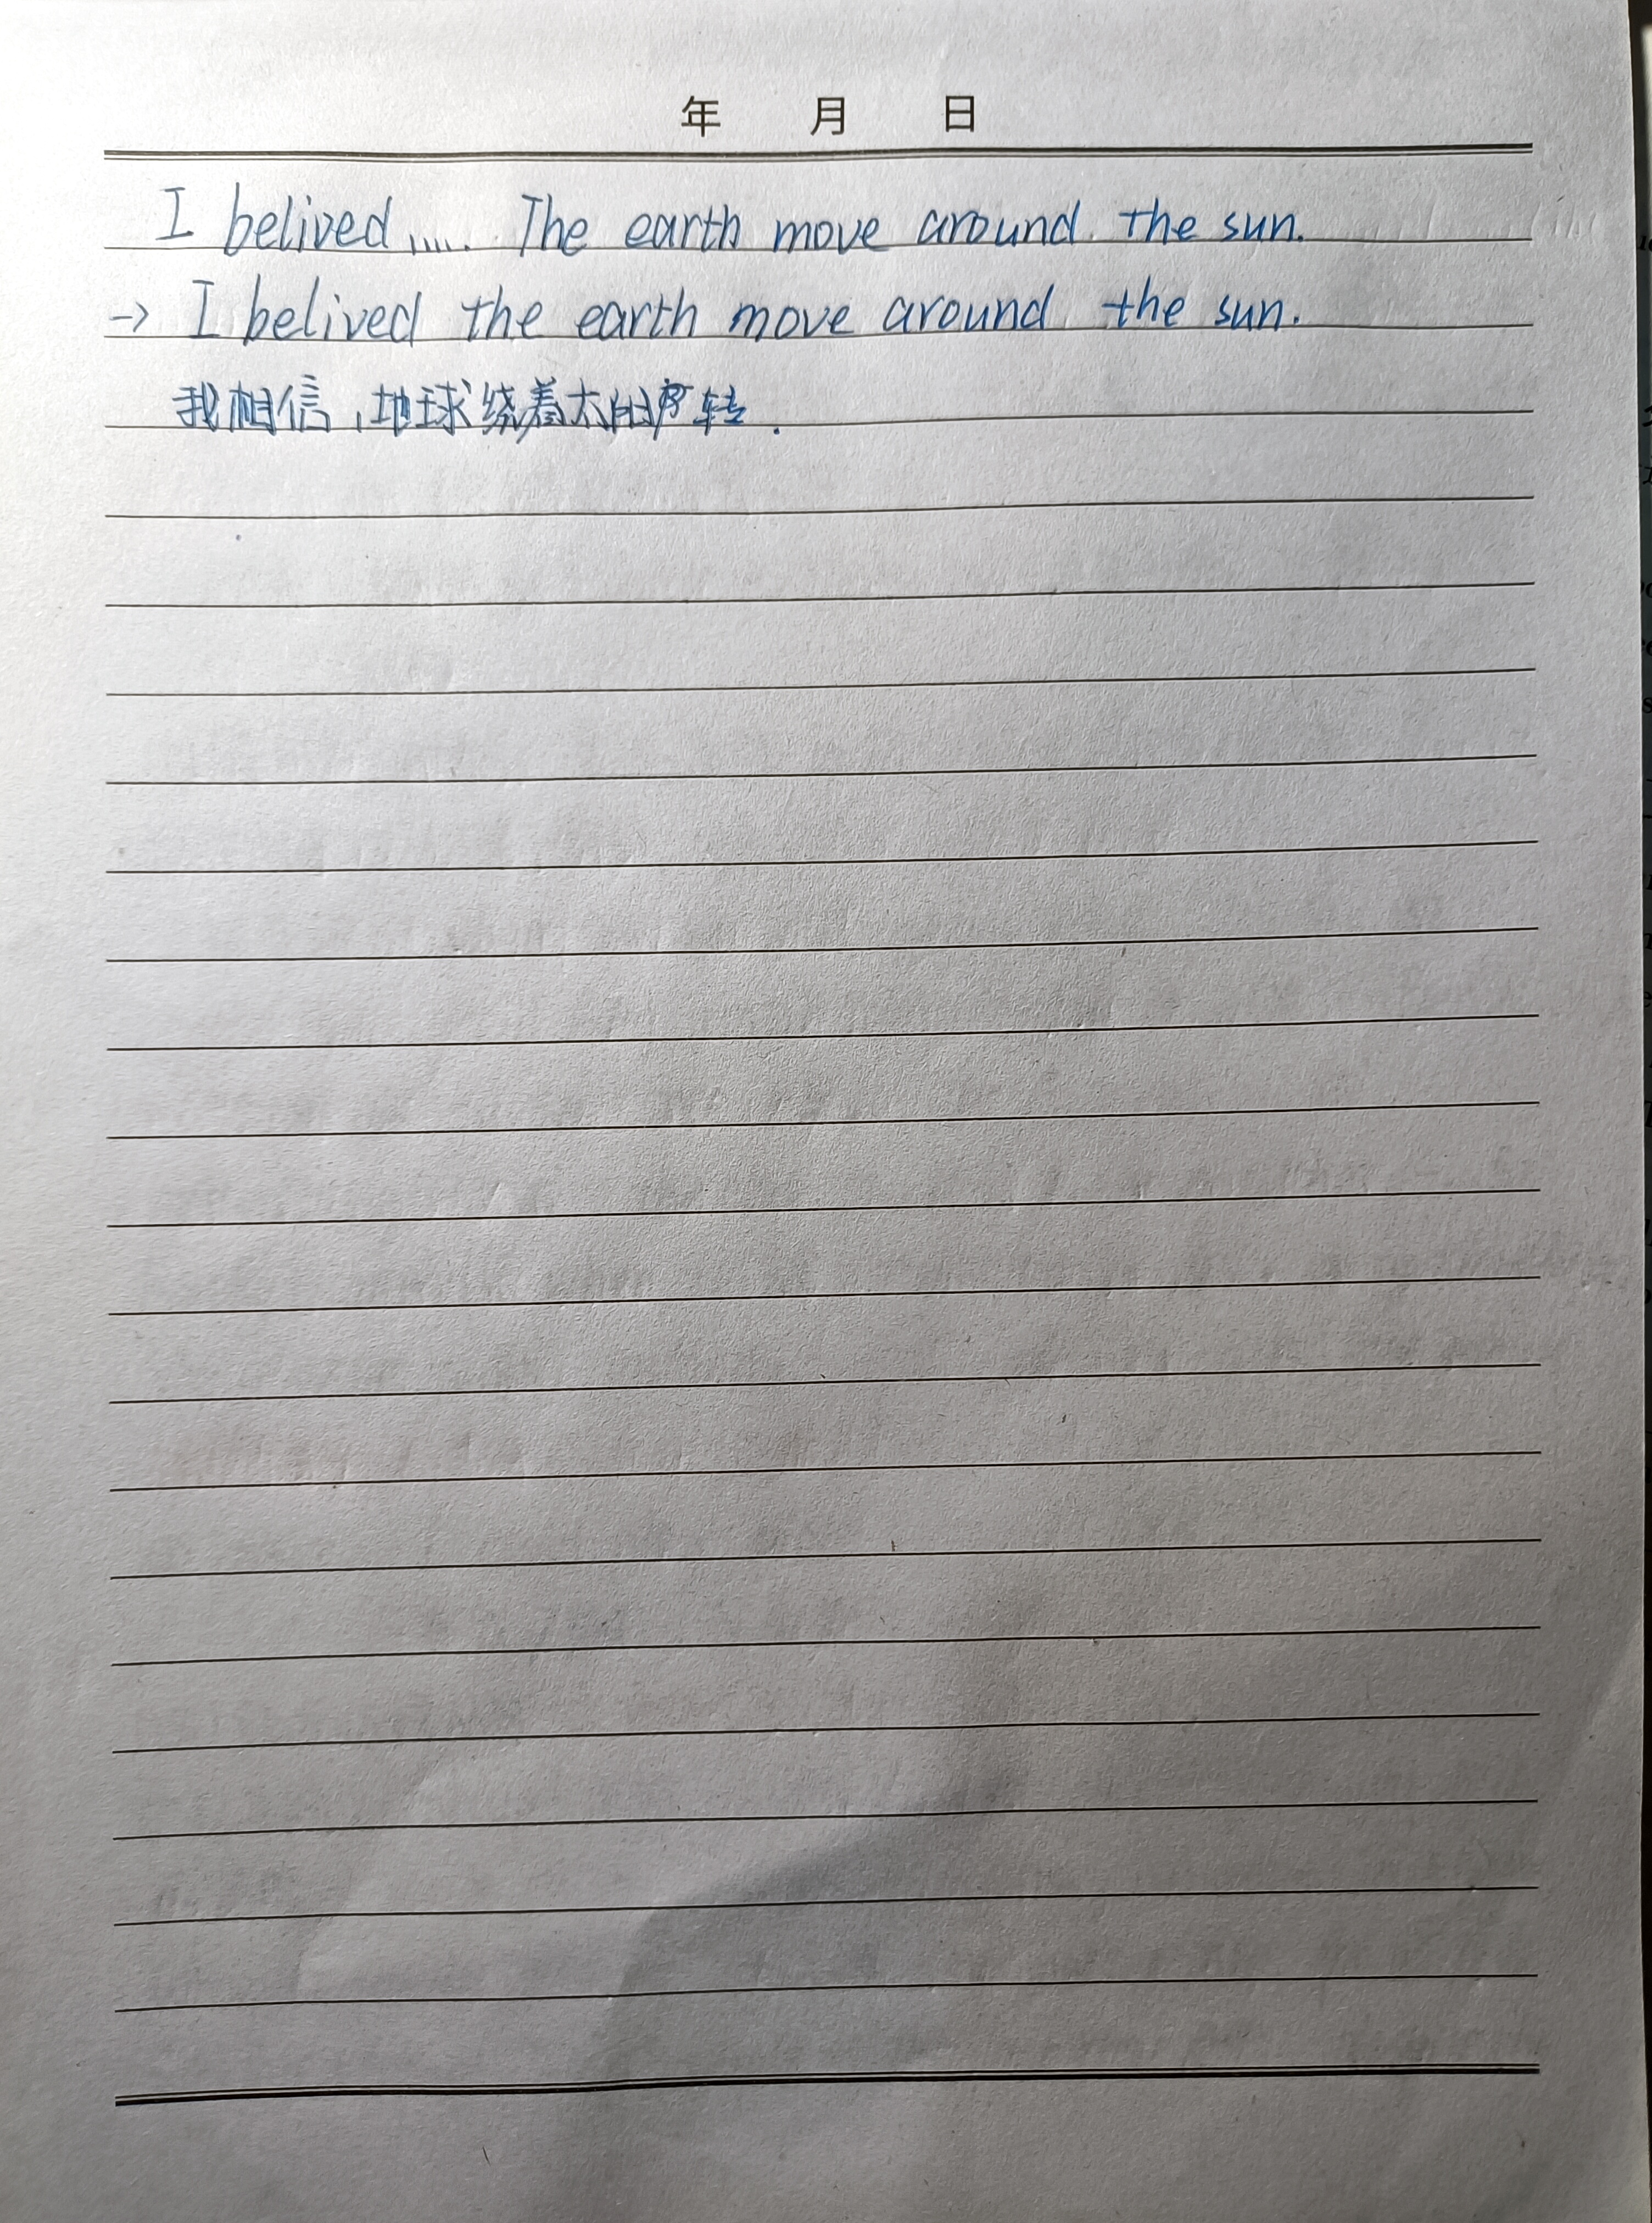 年 月 日
I belived ..... The earth move around the sun.
→ I belived the earth move around the sun.
我相信,地球绕着太阳转.